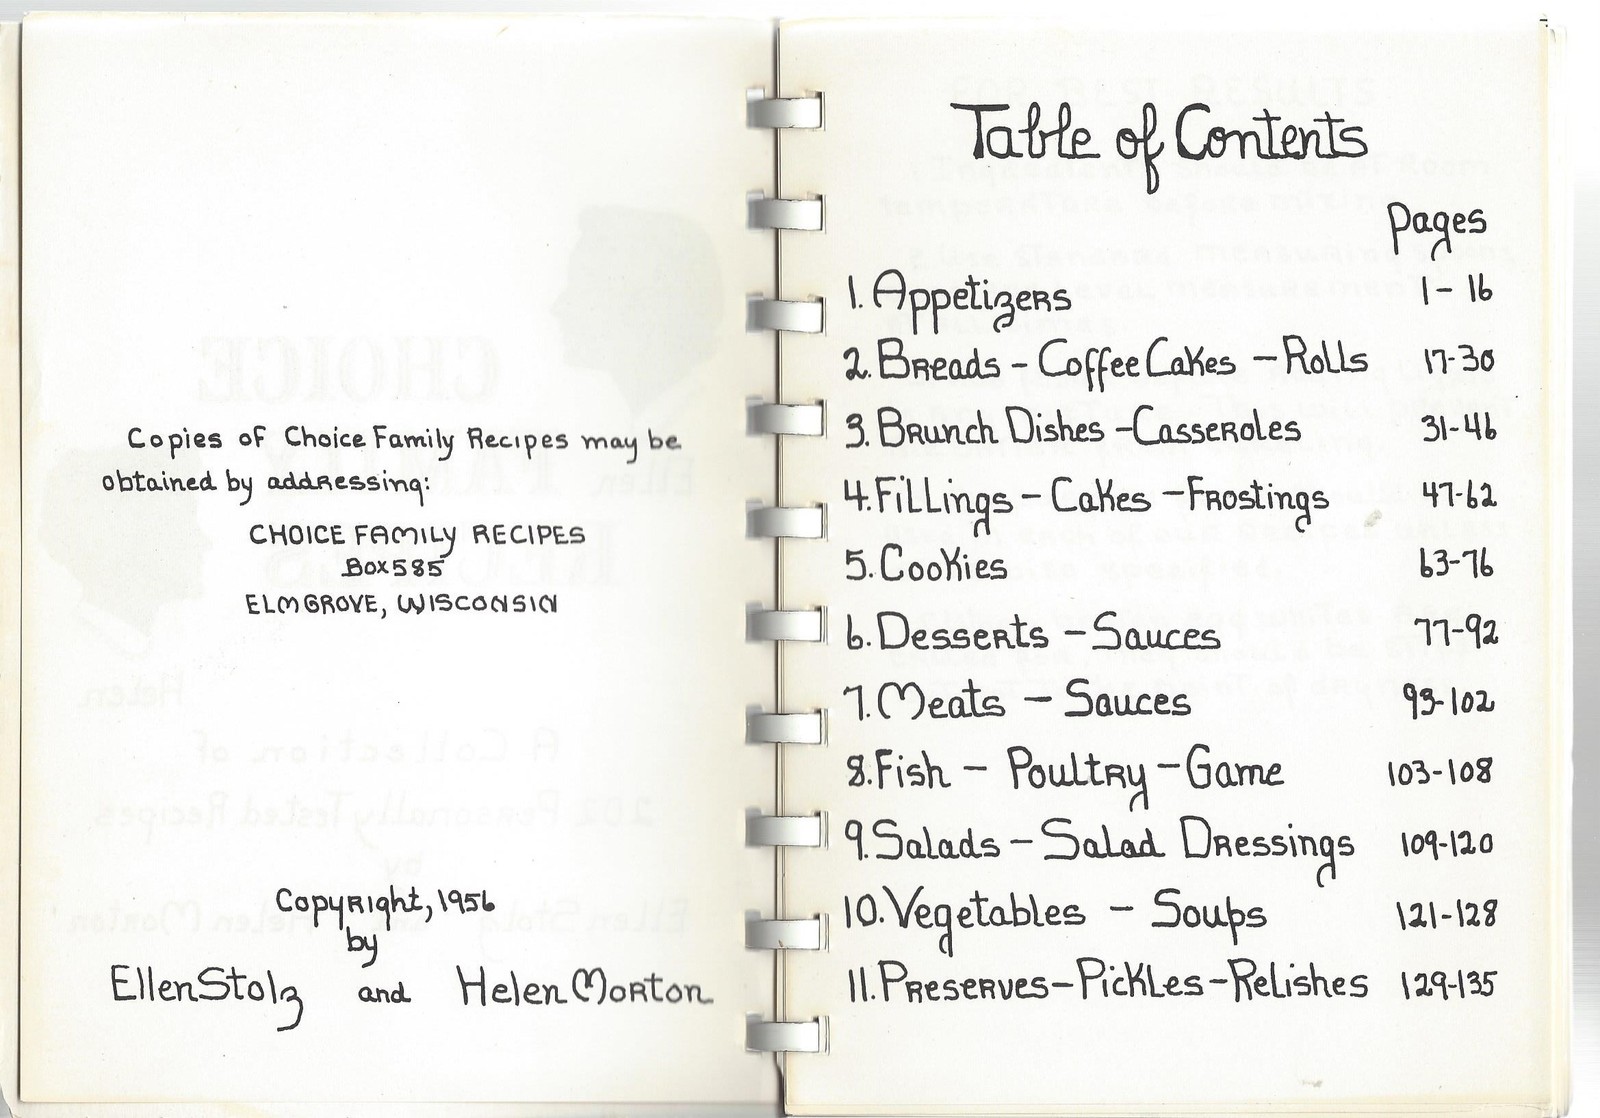 Copies of Choice Family Recipes may be
obtained by addressing:
CHOICE FAMILY RECIPES
Box 585
ELMGROVE, WISCONSIN
Copyright, 1956
by
Ellen Stolz and Helen Morton
Table of Contents
Pages
1. Appetizers 1-16
2. Breads - Coffee Cakes - Rolls 17-30
3. Brunch Dishes - Casseroles 31-46
4. Fillings - Cakes - Frostings 47-62
5. Cookies 63-76
6. Desserts - Sauces 77-92
7. Meats - Sauces 93-102
8. Fish - Poultry - Game 103-108
9. Salads - Salad Dressings 109-120
10. Vegetables - Soups 121-128
11. Preserves - Pickles - Relishes 129-135